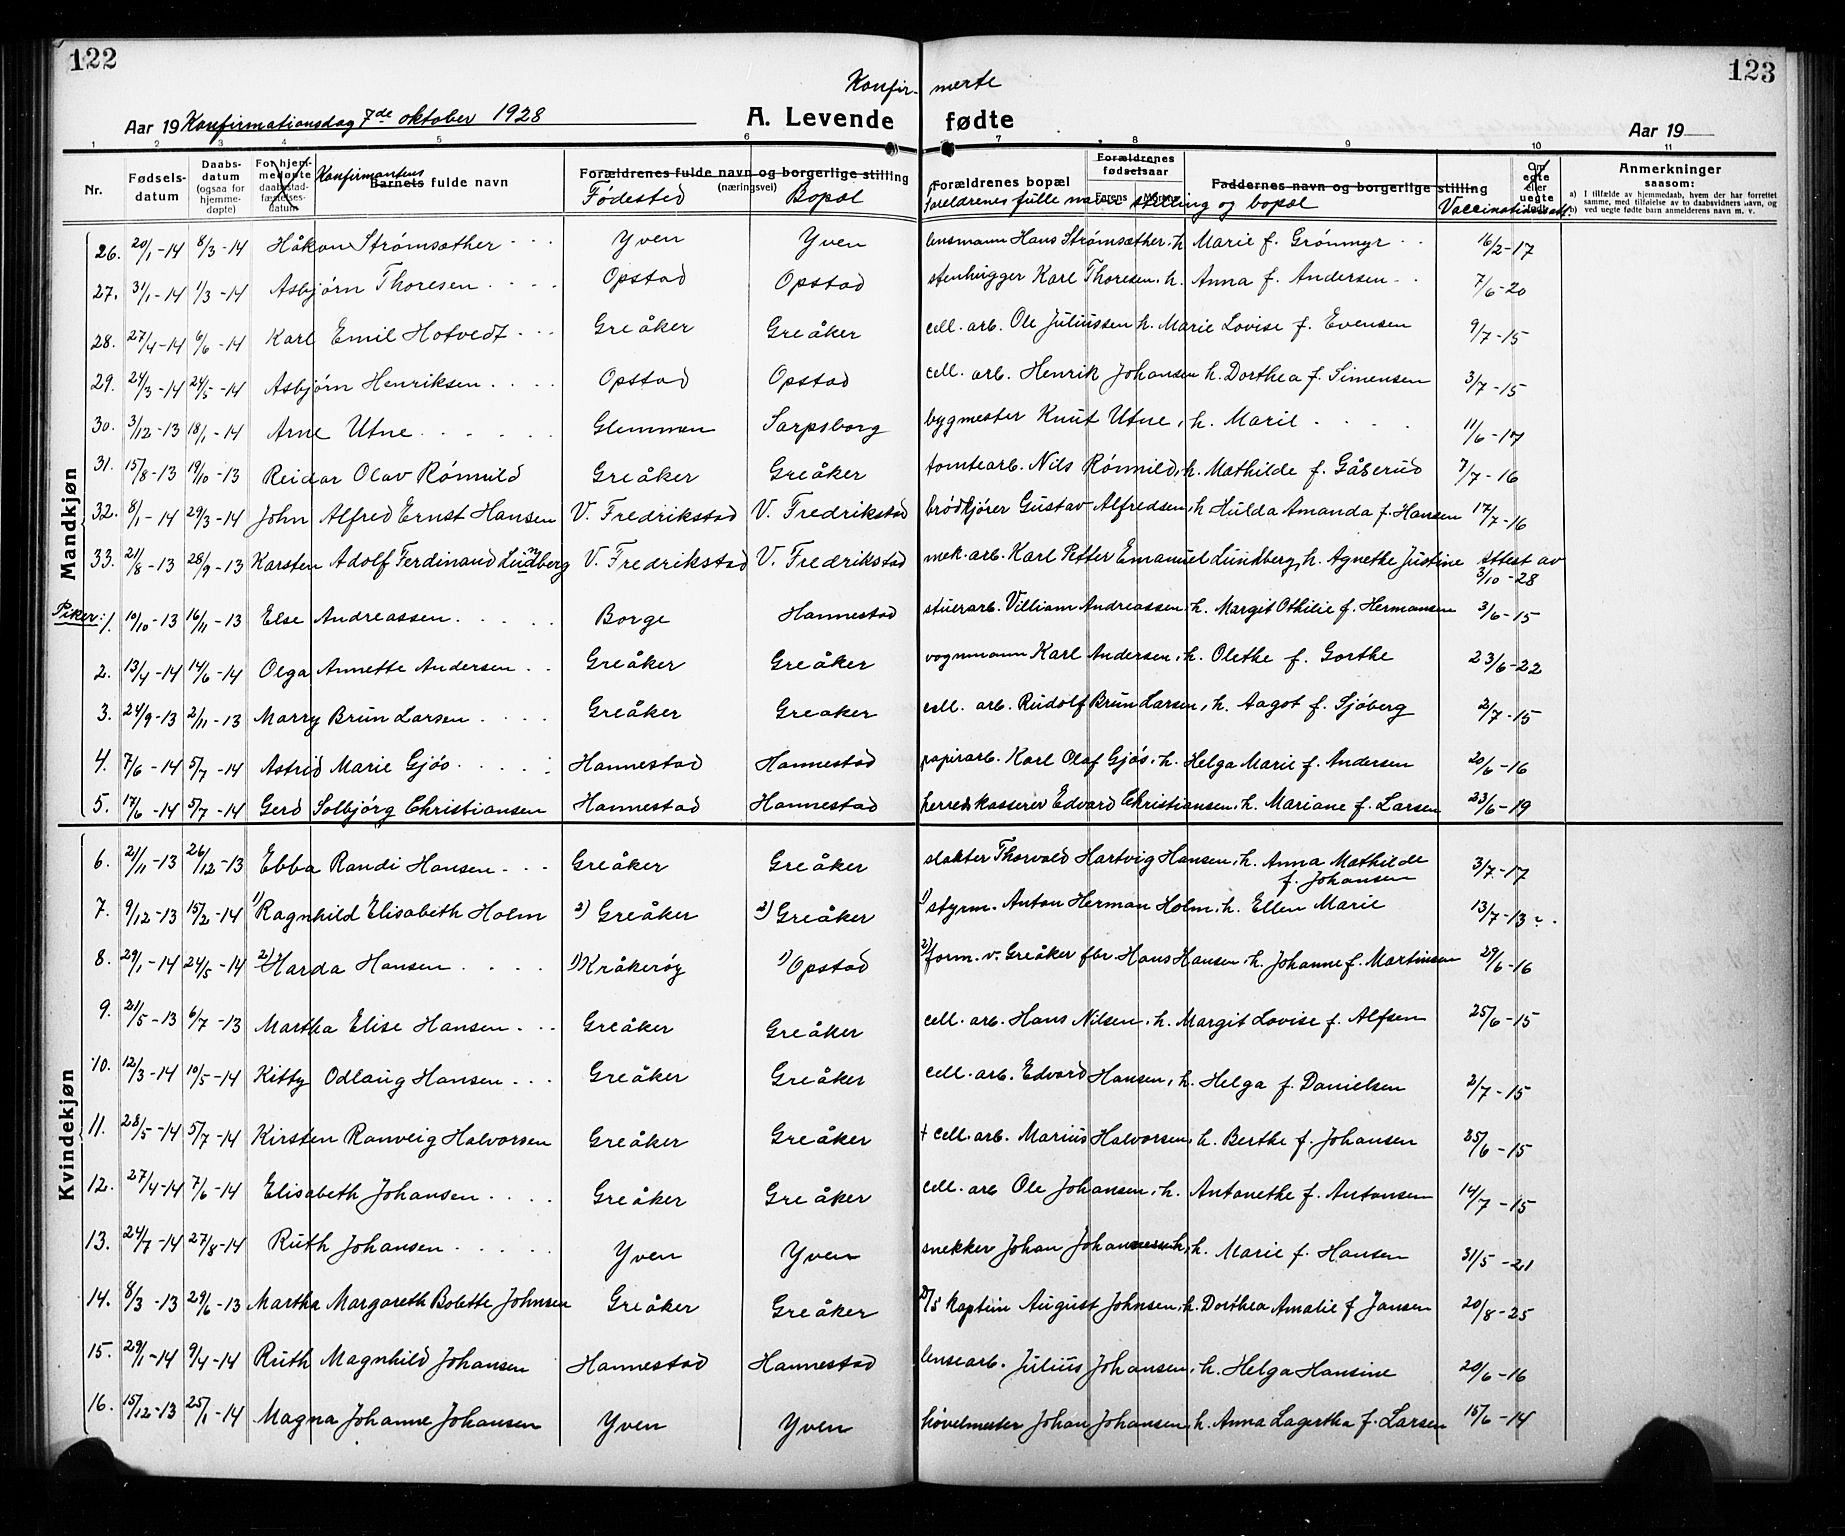 122
123
Konfir- merte
Aar 19 Konfirmationsdag 7de oktober 1928 A. Levende fødte Aar 19
1 2 3 4 5 6 7 8 9 10 11
Nr. Fødsels-datum Daabs-datum (ogsaa for hjemme-døpte) For hjem-medøpte daabstad-fæstelses-datum Konfirmantens Barnets fulde navn Forældrenes fulde navn og borgerlige stilling (næringsvei) Fødested Bopæl Forældrenes bopæl Forældrenes fødselsaar Farens Morens foreldrenes fulle navn stilling og bopæl Faddernes navn og borgerlige stilling Vaccinationsatt. Om egte eller uegte født Anmerkninger saasom:
a) I tilfælde av hjemmedaab, hvem der har forrettet samme, med tilføielse av to daabsvidners navn, og
b) ved uegte fødte barn anmelderens navn m. v.
Mandkjøn
26. 20/1-14 8/3-14 Håkon Strømsæther Yven Yven lensmann Hans Strømsæther, h. Marie f. Grønmyr 16/2-17
27. 31/1-14 1/3-14 Asbjørn Thoresen Opstad Opstad stenhugger Karl Thoresen, h. Anna f. Andersen 7/6-20
28. 27/4-14 6/6-14 Karl Emil Hotvedt Greåker Greåker cell. arb. Ole Juliussen h. Marie Lovise f. Evensen 9/7-15
29. 24/3-14 24/5-14 Asbjørn Henriksen Opstad Opstad cell. arb. Henrik Johansen h. Dorthea f. Simensen 3/7-15
30. 3/12-13 18/1-14 Arne Utne Glemmen Sarpsborg bygmester Knut Utne, h. Marie 11/6-17
31. 15/8-13 19/10-13 Reidar Olav Rømuld Greåker Greåker tomtearb. Nils Rømuld, h. Mathilde f. Gåserud 7/7-16
32. 8/1-14 29/3-14 John Alfred Ernst Hansen V. Fredrikstad V. Fredrikstad brødkjører Gustav Alfredsen, h. Hulda Amanda f. Hansen 17/7-16
33. 21/8-13 28/9-13 Karsten Adolf Ferdinand Lundberg V. Fredrikstad V. Fredrikstad mek. arb. Karl Petter Emanuel Lundberg, h. Agnethe Justine attest av 3/10-28
Piker: 1. 10/10-13 16/11-13 Else Andreassen Borge Hannestad stuerarb. Villiam Andreassen, h. Margit Othilie f. Hermansen 3/6-15
2. 13/4-14 14/6-14 Olga Annette Andersen Greåker Greåker vognmann Karl Andersen, h. Olethe f. Gorthe 23/6-22
3. 24/9-13 2/11-13 Marry Brun Larsen Greåker Greaker cell. arb. Rudolf Brun Larsen, h. Aagot f. Sjöberg 2/7-15
4. 7/6-14 5/7-14 Astrid Marie Gjøs Hannestad Hannestad papirarb. Karl Olaf Gjøs, h. Helga Marie f. Andersen 20/6-16
5. 17/6-14 5/7-14 Gerd Solbjörg Christiansen Hannestad Hannestad herredskasserer Edvard Christiansen, h. Mariane f. Larsen 23/6-19
Kvindekjøn
6. 21/11-13 26/12-13 Ebba Randi Hansen Greåker Greåker slakter Thorvald Hartvig Hansen, h. Anna Mathilde f. Johansen 3/7-17
7. 9/12-13 15/2-14 1) Ragnhild Elisabeth Holm 2) Greåker 2) Greåker 1) styrm. Anton Herman Holm, h. Ellen Marie 13/7-13
8. 29/1-14 24/5-14 2) Harda Hansen 1) Kråkerøy 1) Opstad 2) form. v. Greåker fbr Hans Hansen, h. Johanne f. Martinsen 29/6-16
9. 21/5-13 6/7-13 Martha Elise Hansen Greåker Greåker cell. arb. Hans Nilsen, h. Margit Lovise f. Alfsen 25/6-15
10. 12/3-14 10/5-14 Kitty Odlaug Hansen Greåker Greåker cell. arb. Edvard Hansen, h. Helga f. Danielsen 2/7-15
11. 28/5-14 5/7-14 Kirsten Ranveig Halvorsen Greåker Greåker + cell. arb. Marius Halvorsen, h. Berthe f. Johansen 25/6-15
12. 27/4-14 7/6-14 Elisabeth Johansen Greåker Greåker cell. arb Ole Johansen, h. Antonethe f. Antonsen 14/7-15
13. 24/7-14 27/8-14 Ruth Johansen Yven Yven snekker Johan h. Marie f. Hansen 31/5-21
14. 8/3-13 29/6-13 Martha Margareth Bolette Johnsen Greåker Greåker kaptein August Johnsen, h. Dorthea Amalie f Jansen 20/8-25
15. 29/1-14 9/4-14 Ruth Magnhild Johansen Hannestad Hannestad lensearb. Julius Johansen, h. Helga Hansine 20/6-16
16. 15/12-13 25/1-14 Magna Johanne Johansen Yven Yven høvelmester Johan Johansen, h. Anna Lagertha f. Larsen 15/6-14